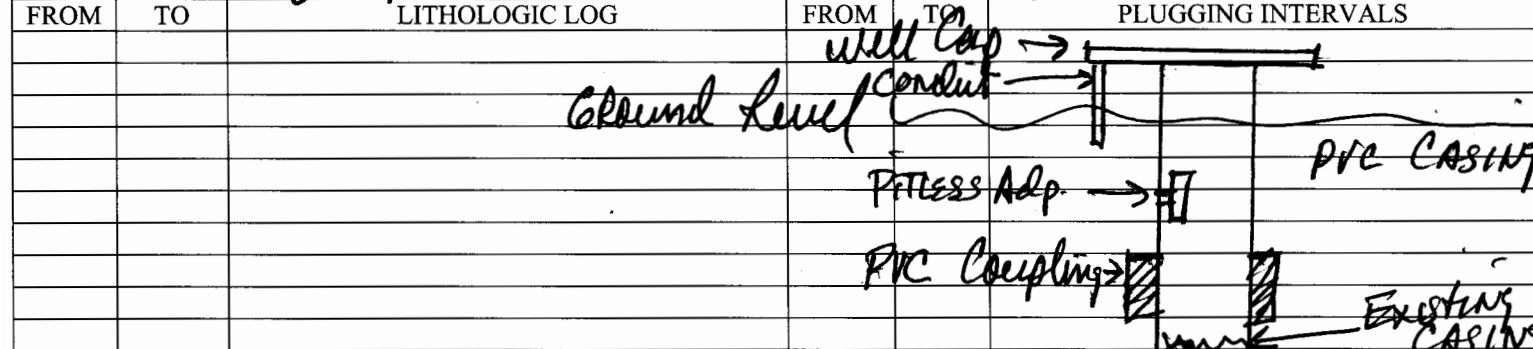 FROM TO LITHOLOGIC LOG FROM TO PLUGGING INTERVALS
Well Cap
Conduit
Ground Level
PVC CASING
PITLESS Adp.
PVC Coupling
Existing
CASING